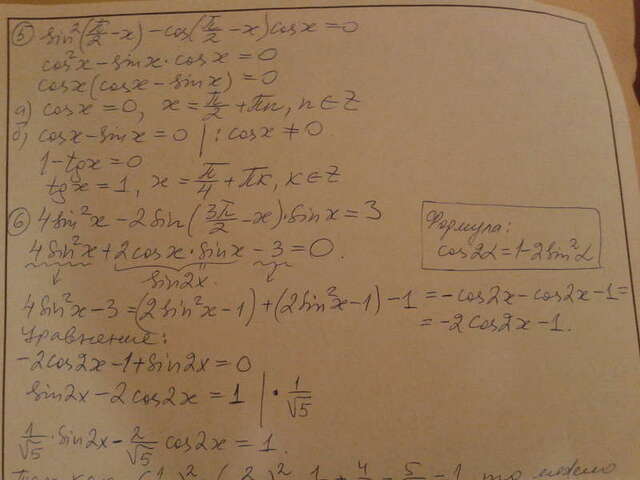 ⑤ sin²(π/2 - x) - cos(π/2 - x)cosx = 0
cos²x - sinx · cosx = 0
cosx(cosx - sinx) = 0
а) cosx = 0, x = π/2 + πn, n ∈ Z
б) cosx - sinx = 0 | : cosx ≠ 0.
1 - tgx = 0
tgx = 1, x = π/4 + πk, k ∈ Z
⑥ 4sin²x - 2sin(3π/2 - x) · sinx = 3
4sin²x + 2cosx · sinx - 3 = 0.
sin2x
Формула:
cos2α = 1 - 2sin²α
4sin²x - 3 = (2sin²x - 1) + (2sin²x - 1) - 1 = -cos2x - cos2x - 1 =
= -2cos2x - 1.
Уравнение:
-2cos2x - 1 + sin2x = 0
sin2x - 2cos2x = 1 | · 1/√5
1/√5 · sin2x - 2/√5 cos2x = 1.